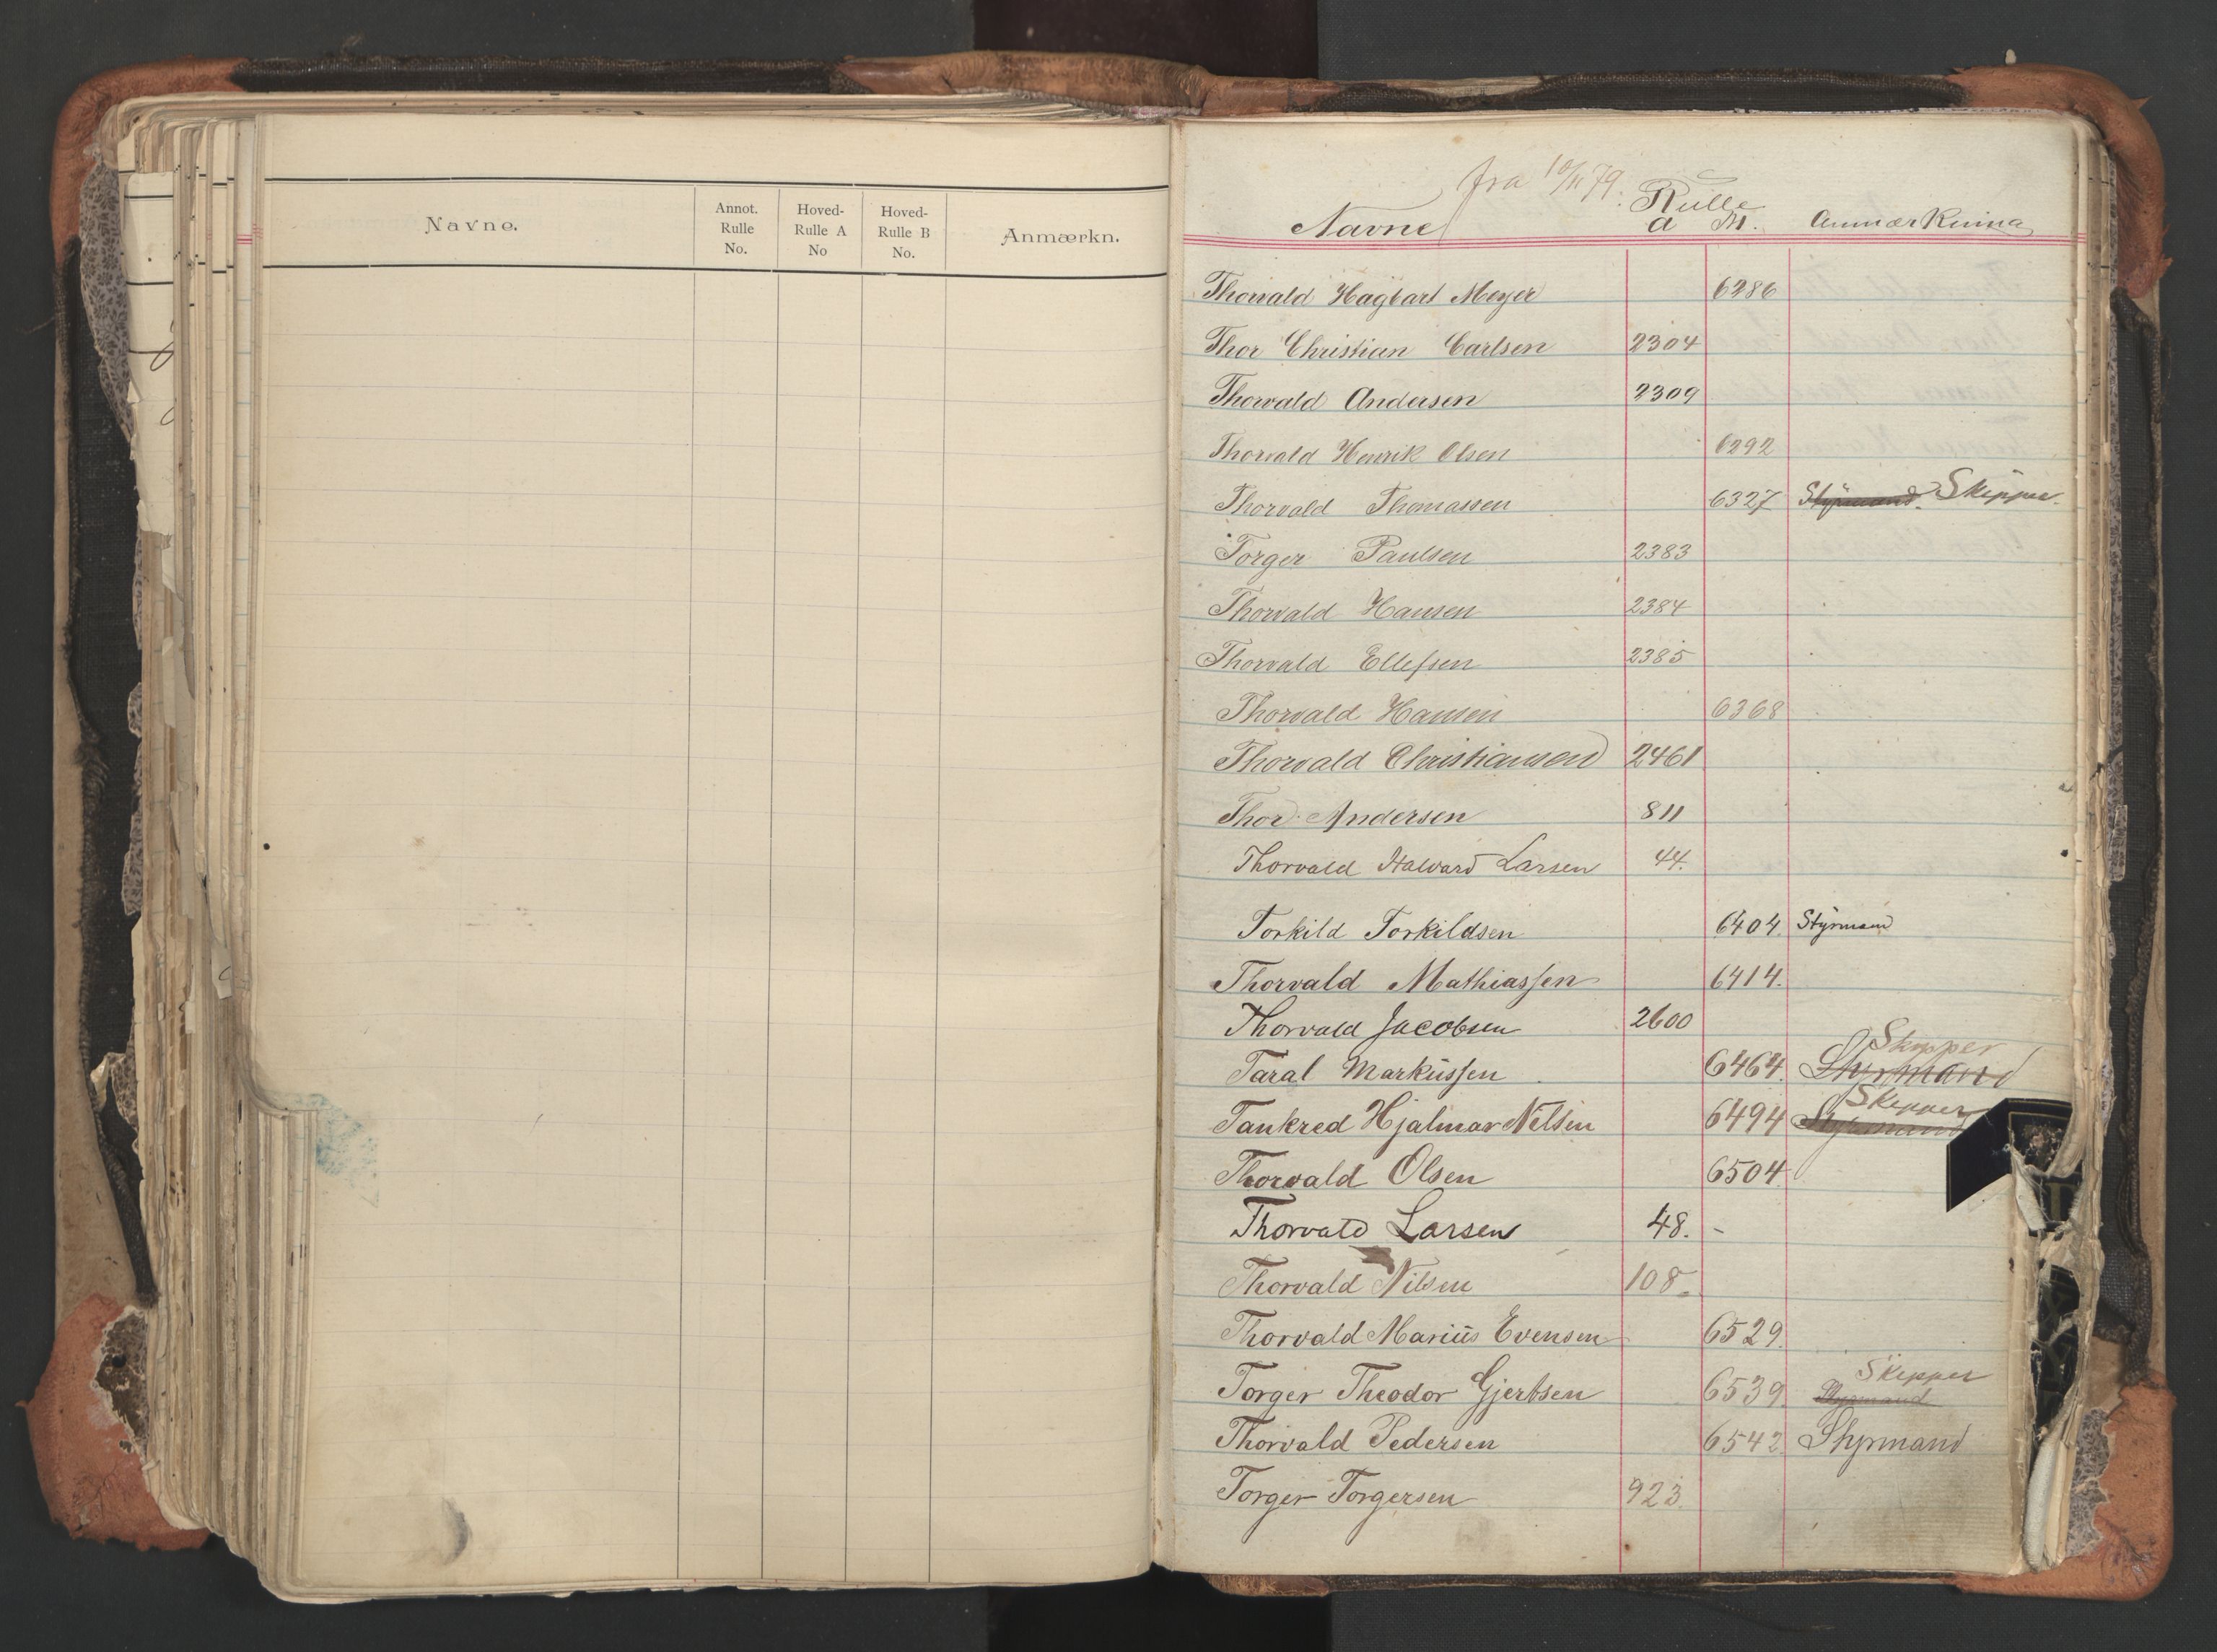 Navne.
Annot. Rulle No.
Hoved- Rulle A No
Hoved- Rulle B No.
Anmærkn.
fra 10/11 79.
Navne Rulle a M. Anmærkning
Thorvald Hagbart Meyer 6286
Thor Christian Carlsen 2304
Thorvald Andersen 2309
Thorvald Henrik Olsen 6292
Thorvald Thomassen 6327 Styrmand. Skipper.
Torger Paulsen 2383
Thorvald Hansen 2384
Thorvald Ellefsen 2385
Thorvald Hansen 6368
Thorvald Christiansen 2461
Thor Andersen 811
Thorvald Halvard Larsen 44.
Torkild Torkildsen 6404. Styrmand
Thorvald Mathiassen 6414.
Thorvald Jacobsen 2600
Skipper
Taral Markussen 6464. Styrmand
Skipper
Tankred Hjalmar Nilsen 6494 Styrmand
Thorvald Olsen 6504
Thorvald Larsen 48. -
Thorvald Nilsen 108
Thorvald Marius Evensen 6529.
Skipper
Torger Theodor Gjertsen 6539. Styrmand
Thorvald Pedersen 6542 Styrmand
Torger Torgersen 923.